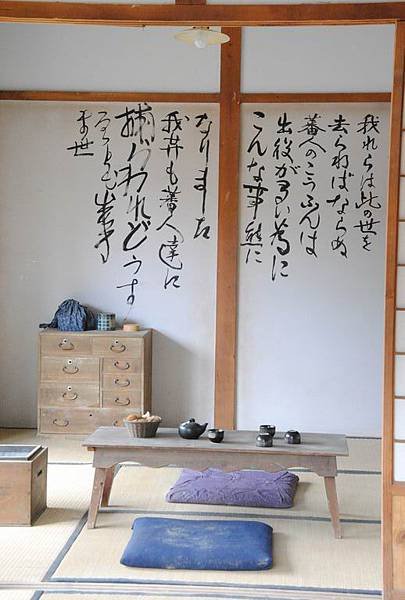 我れらは此の世を
去らねばならぬ
蕃人のこうふんは
出役が多い為に
こんな事態に
なりました
我等も蕃人達に
捕らわれどうす
ることも出来